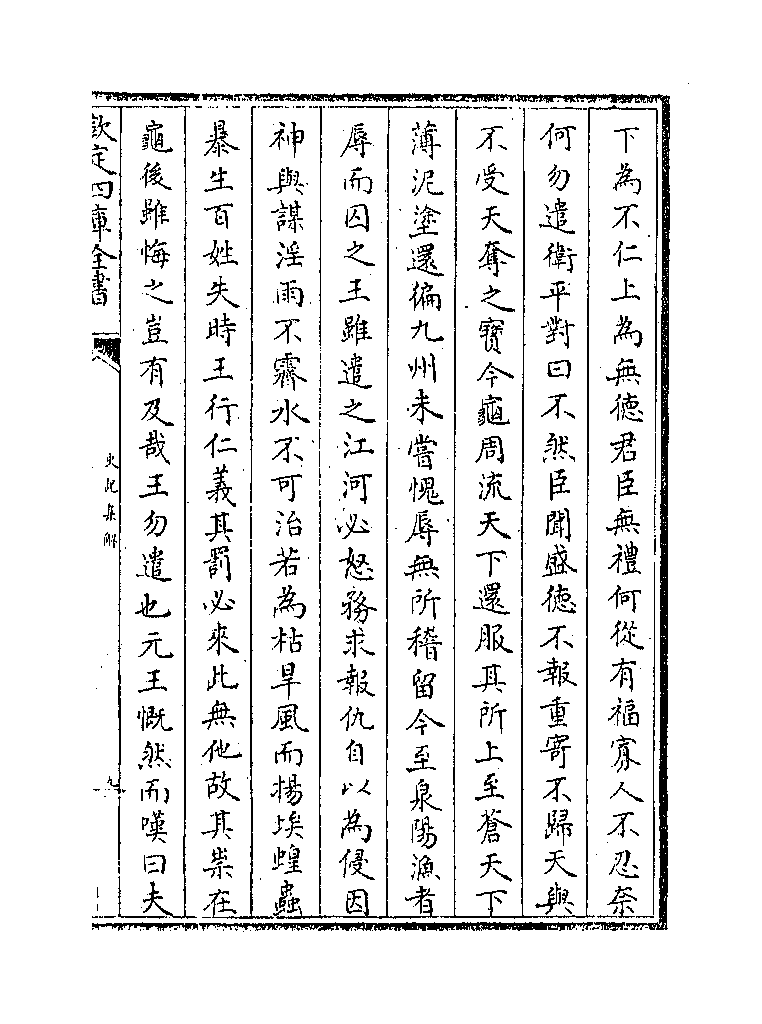 下為不仁上為無徳君臣無禮何從有福寡人不忍奈
何勿遣衛平對曰不然臣聞盛徳不報重寄不歸天與
不受天奪之寳今龜周流天下還服其所上至蒼天下
薄泥塗還徧九州未嘗愧辱無所稽留今至泉陽漁者
辱而囚之王雖遣之江河必怒務求報仇自以為侵因
神與謀淫雨不霽水不可治若為枯旱風而揚埃蝗蟲
暴生百姓失時王行仁義其罰必來此無他故其祟在
龜後雖悔之豈有及哉王勿遣也元王慨然而嘆曰夫
欽定四庫全書
史記集解
九